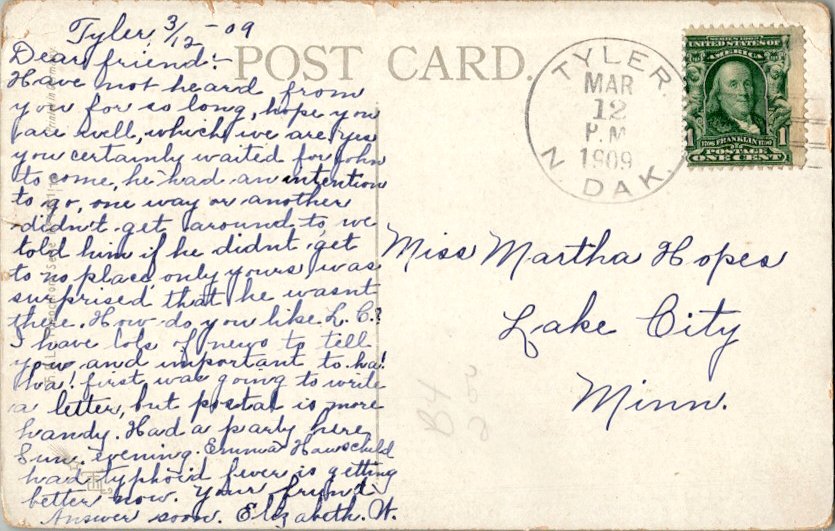 Tyler, 3/12-09
Dear friend:-
Have not heard from
you for so long, hope you
are well, which we are, yes
you certainly waited for John
to come, he had an intention
to go, one way or another
didn't get around to, we
told him if he didn't get
to no place, only yours, was
surprised that he wasn't
there. How do you like L. C.?
I have lots of news to tell
you and important to. ha!
ha! first was going to write
a letter, but postal is more
handy. Had a party here
Sun. evening. Emma
had typhoid fever is getting
better now. Your friend
Answer soon. Elizabeth. W.
POST CARD.
TYLER.
MAR
12
P.M
1909
N. DAK.
SERIES 1902
UNITED STATES OF
AMERICA
1 1
1706 FRANKLIN 1790
POSTAGE
ONE CENT
Miss Martha Hopes
Lake City
Minn.
B4